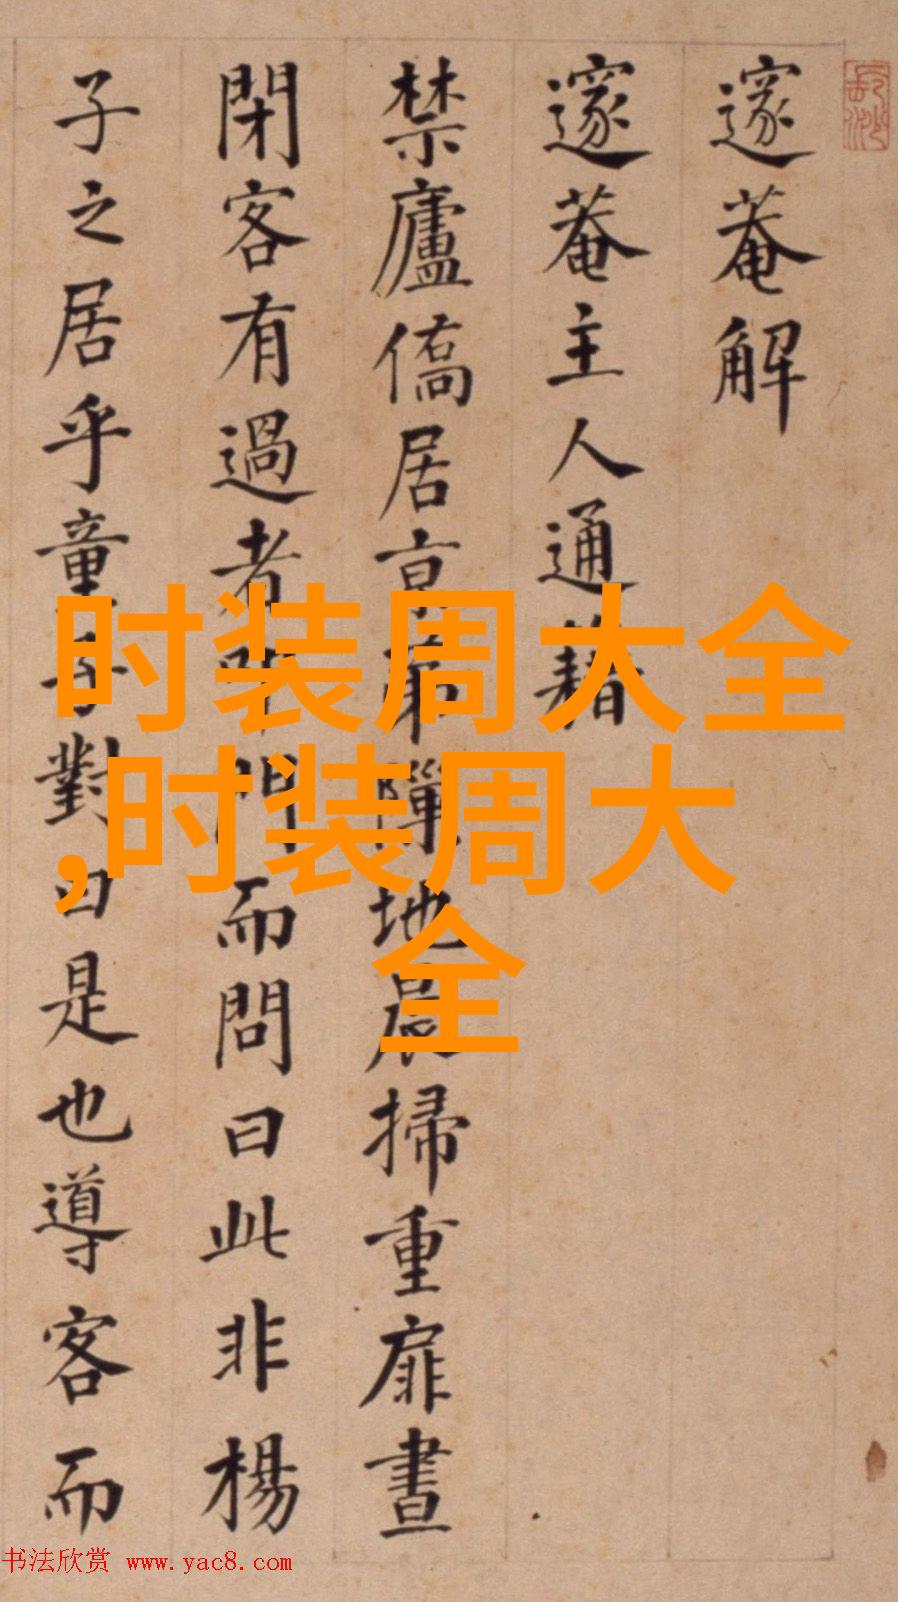 邃菴解
邃菴主人通籍
禁廬僑居京第 地晨掃重扉晝
閉客有過者 門而問曰此非楊
子之居乎童子對曰是也導客而
时装周大全
,时装周大
全
书法欣赏 www.yac8.com